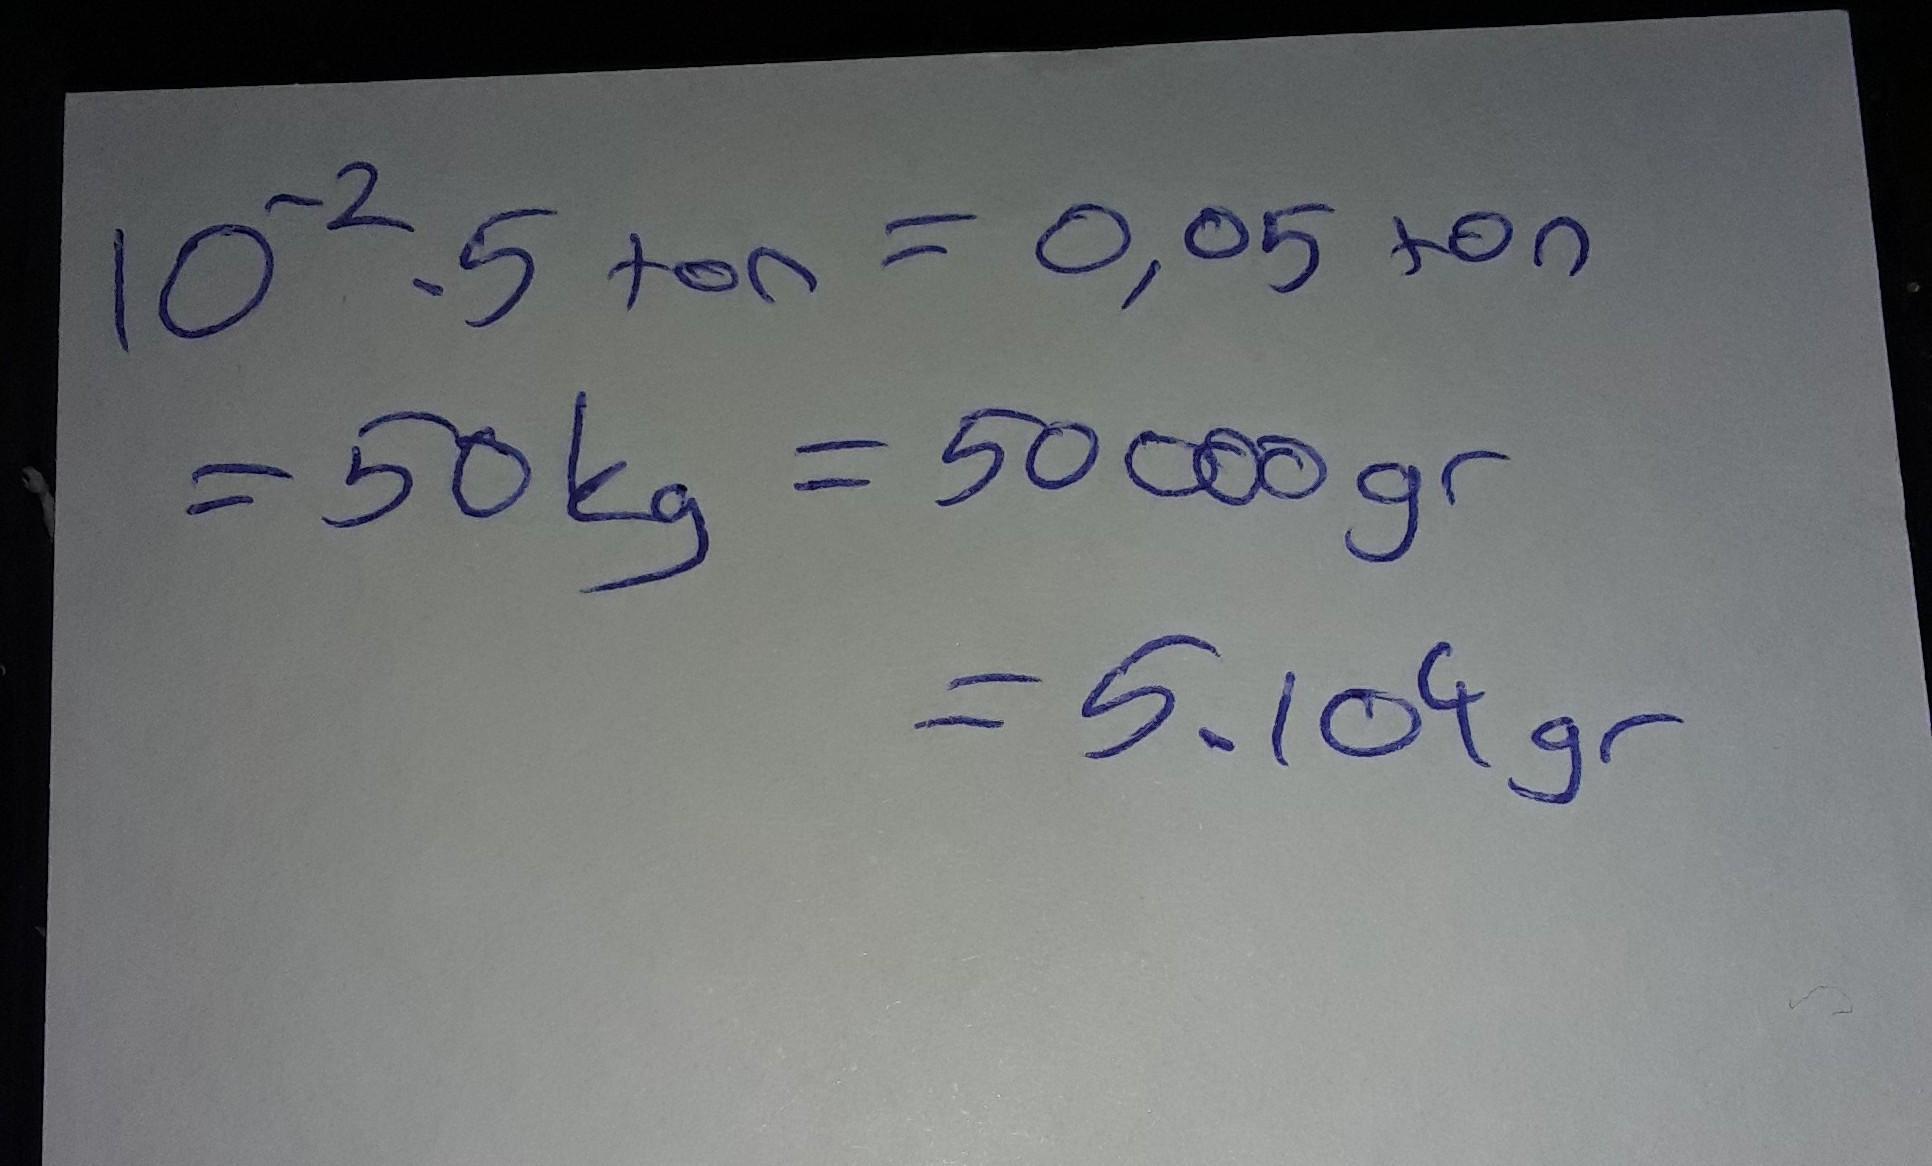 10⁻².5 ton = 0,05 ton
= 50 kg = 50000 gr
= 5.10⁴ gr